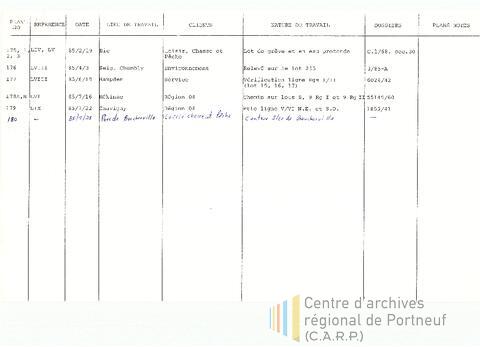 PLAN/ NO RÉFÉRENCE DATE LIEU DE TRAVAIL CLIENTS NATURE DU TRAVAIL DOSSIERS PLANS NOTES
LIV, LV 85/2/19 Bic Loisir, Chasse et Pêche Lot de grève et en eau profonde
176 LVIII 85/4/3 Seig. Chambly Environnement Relevé sur le lot 255 3/85-A
177 LVIII Hampden Service Vérification ligne Rgs
(lot 15, 16, 17) 6024/42
85/7/16 Mékinac Région 04 Chemin sur lots 8, 9 Rg I et 9 Rg II 55145/60
179 LIX 85/7/22 Chavigny Région 04 ligne V/VI N.E. et S.O. 1855/41
180 — Parc de Boucherville Loisir chasse et Pêche Contour Iles de Boucherville —
Centre d'archives
régional de Portneuf
(C.A.R.P.)